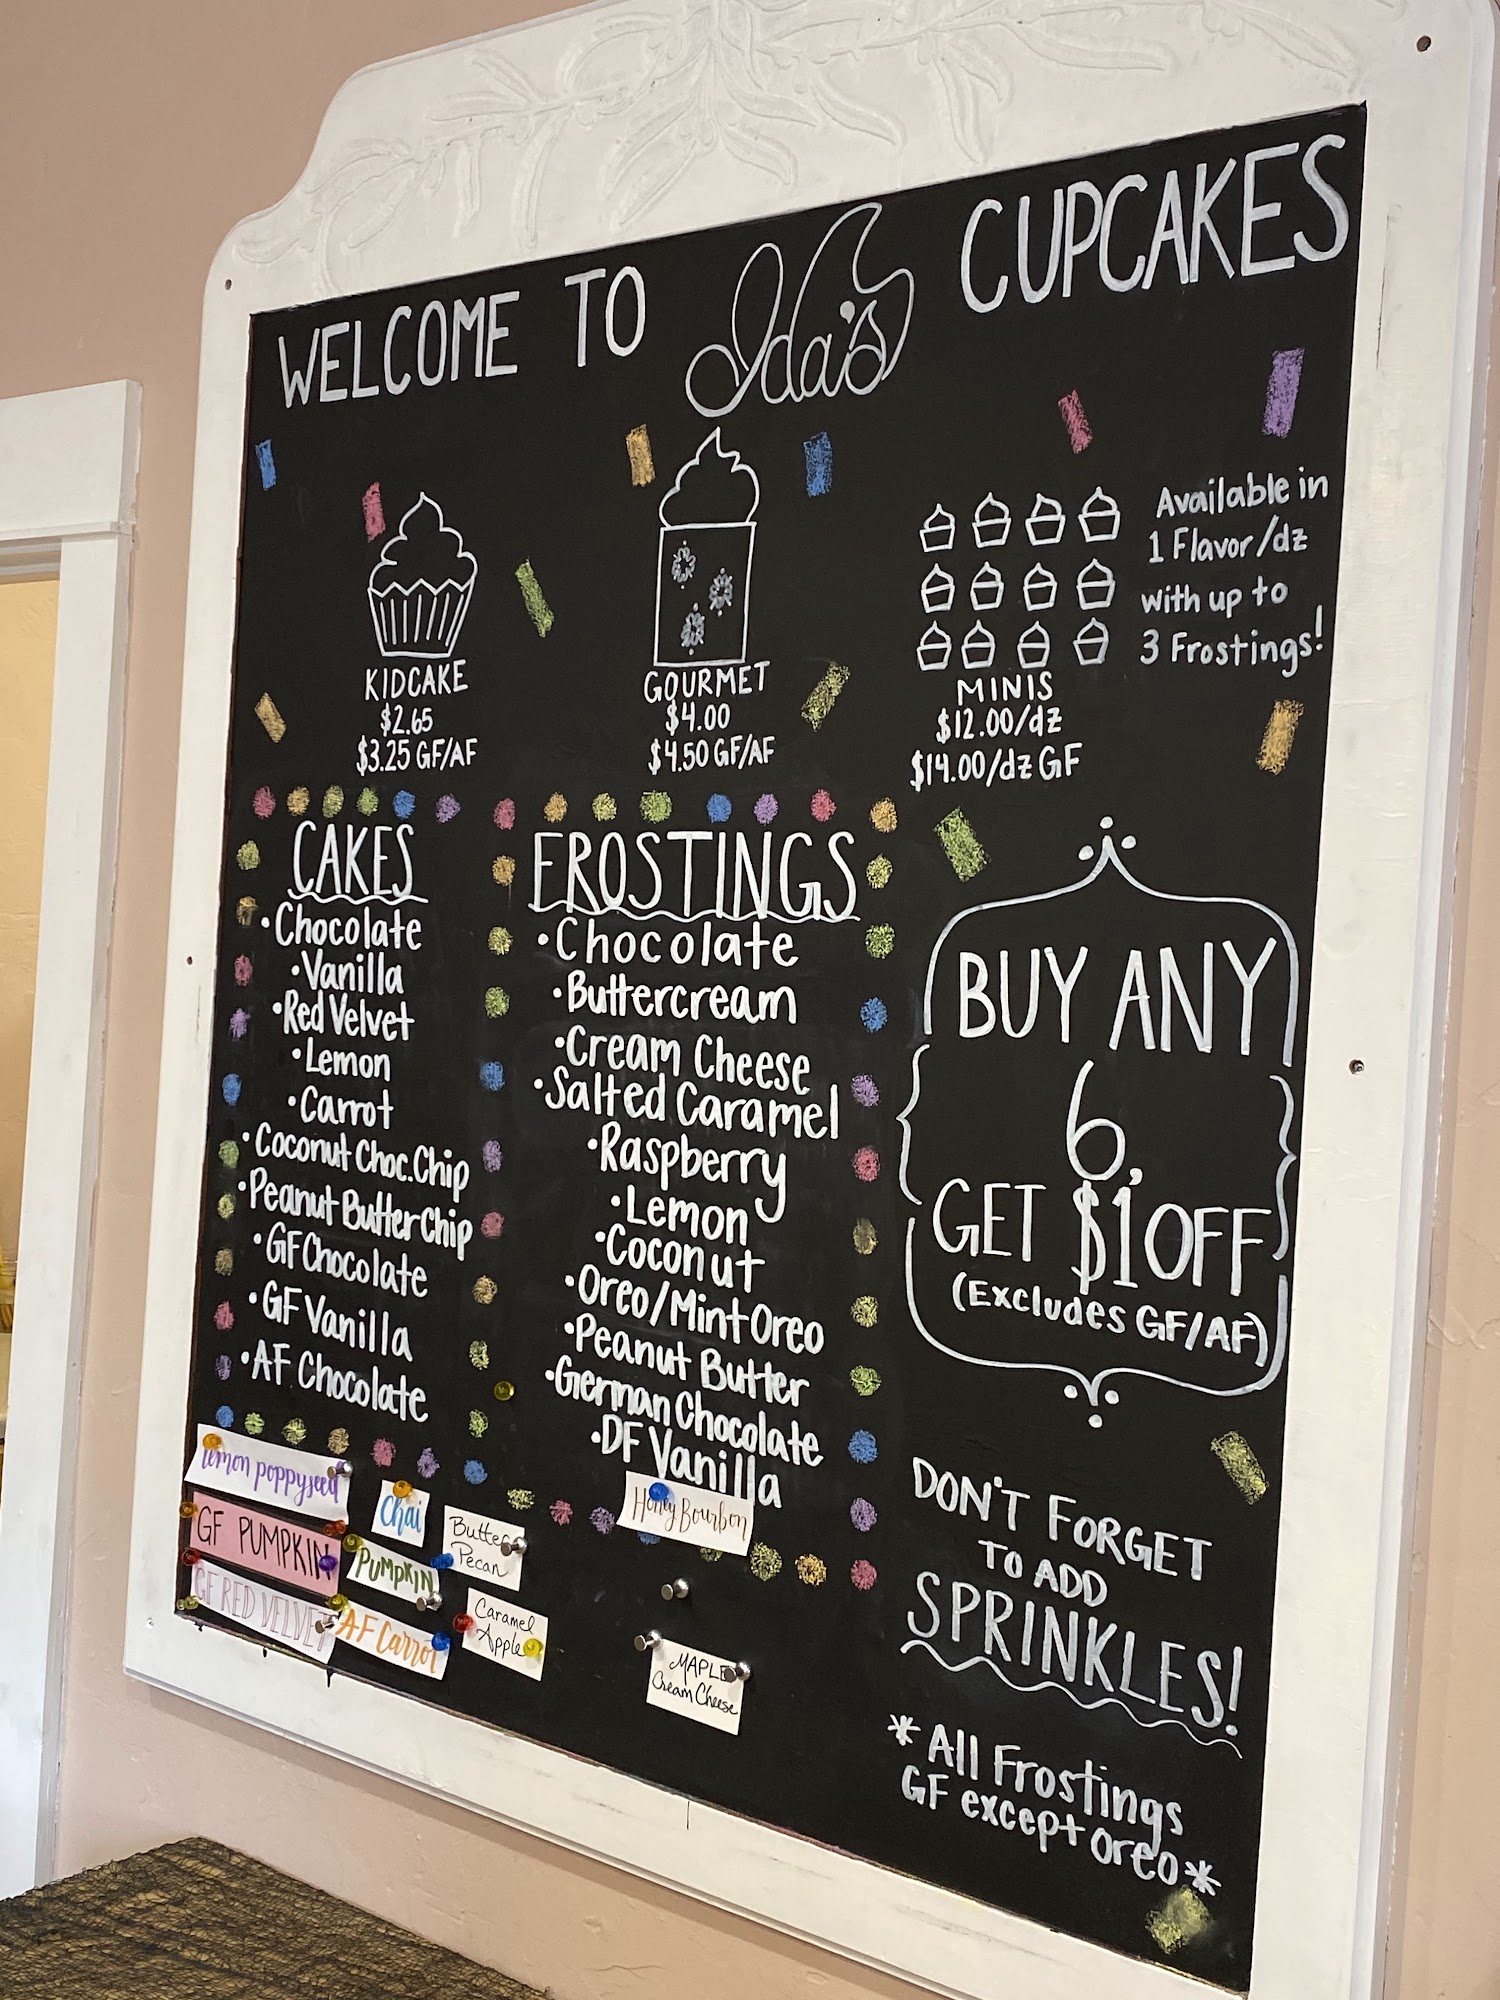 WELCOME TO Ida's CUPCAKES
KIDCAKE
$2.65
$3.25 GF/AF
GOURMET
$4.00
$4.50 GF/AF
MINIS
$12.00/dz
$14.00/dz GF
Available in
1 Flavor/dz
with up to
3 Frostings!
CAKES
•Chocolate
•Vanilla
•Red Velvet
•Lemon
•Carrot
•Coconut Choc.Chip
•Peanut Butter Chip
•GF Chocolate
•GF Vanilla
•AF Chocolate
lemon poppyseed
GF PUMPKIN
GF RED VELVET
Chai
PUMPKIN
AF Carrot
Butter
Pecan
Caramel
Apple
FROSTINGS
•Chocolate
•Buttercream
•Cream Cheese
•Salted Caramel
•Raspberry
•Lemon
•Coconut
•Oreo/Mint Oreo
•Peanut Butter
•German Chocolate
•DF Vanilla
Honey Bourbon
MAPLE
Cream Cheese
BUY ANY
6,
GET $1 OFF
(Excludes GF/AF)
DON'T FORGET
TO ADD
SPRINKLES!
*All Frostings
GF except Oreo*